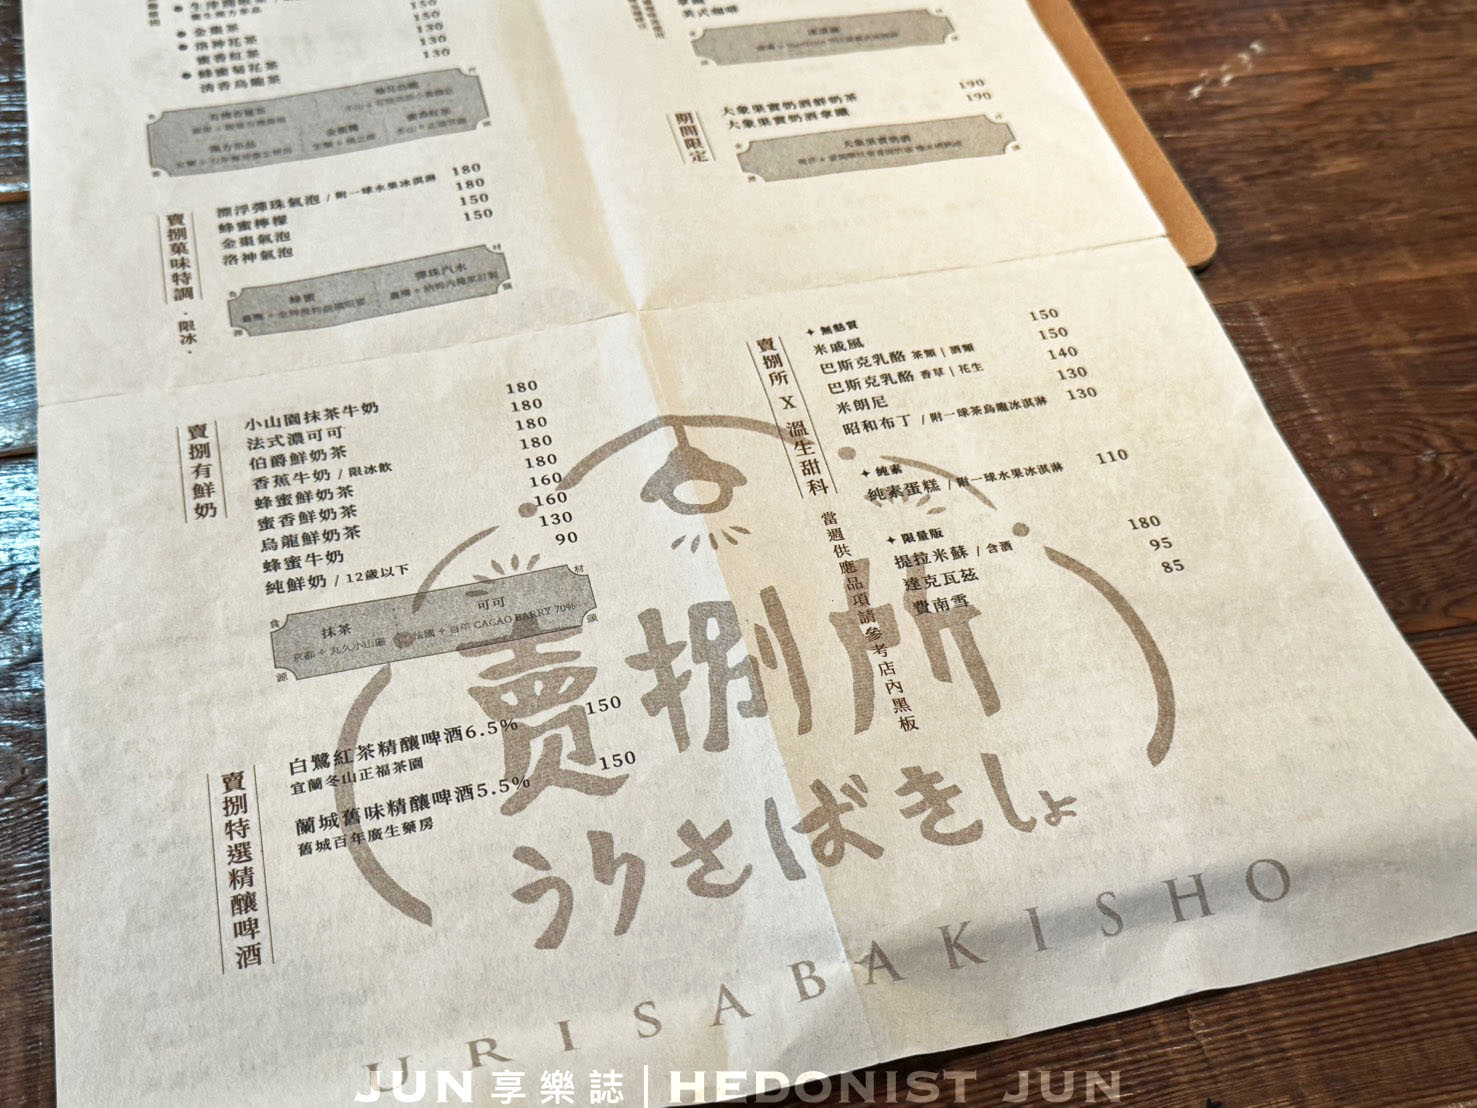 150
金棗茶 150
洛神花茶 130
蜜香紅茶 130
蜂蜜菊花茶 130
清香烏龍茶
賣捌菓味特調．限冰．
漂浮彈珠氣泡 / 附一球水果冰淇淋 180
蜂蜜檸檬 180
金棗氣泡 150
洛神氣泡 150
食材源頭
蜂蜜
彈珠汽水
賣捌有鮮奶
小山園抹茶牛奶 180
法式濃可可 180
伯爵鮮奶茶 180
香蕉牛奶 / 限冰飲 180
蜂蜜鮮奶茶 180
蜜香鮮奶茶 160
烏龍鮮奶茶 160
蜂蜜牛奶 130
純鮮奶 / 12歲以下 90
食材源頭
抹茶
京都 丸久小山園
可可
法國 百年 CACAO BARRY 70%
賣捌特選精釀啤酒
白鷺紅茶精釀啤酒6.5% 150
宜蘭冬山正福茶園
蘭城舊味精釀啤酒5.5% 150
舊城百年廣生藥房
美式咖啡
期間限定
大象果實奶酒鮮奶茶 190
大象果實奶酒拿鐵 190
大象果實奶酒
賣捌所 X 溫生甜科
當週供應品項請參考店內黑板
無麩質
米戚風 150
巴斯克乳酪 茶類 | 酒類 150
巴斯克乳酪 香草 | 花生 140
米朗尼 130
昭和布丁 / 附一球茶烏龍冰淇淋 130
純素
純素蛋糕 / 附一球水果冰淇淋 110
限量版
提拉米蘇 / 含酒 180
達克瓦茲 95
費南雪 85
賣捌所
うりさばきしょ
URISABAKISHO
JUN享樂誌 | HEDONIST JUN